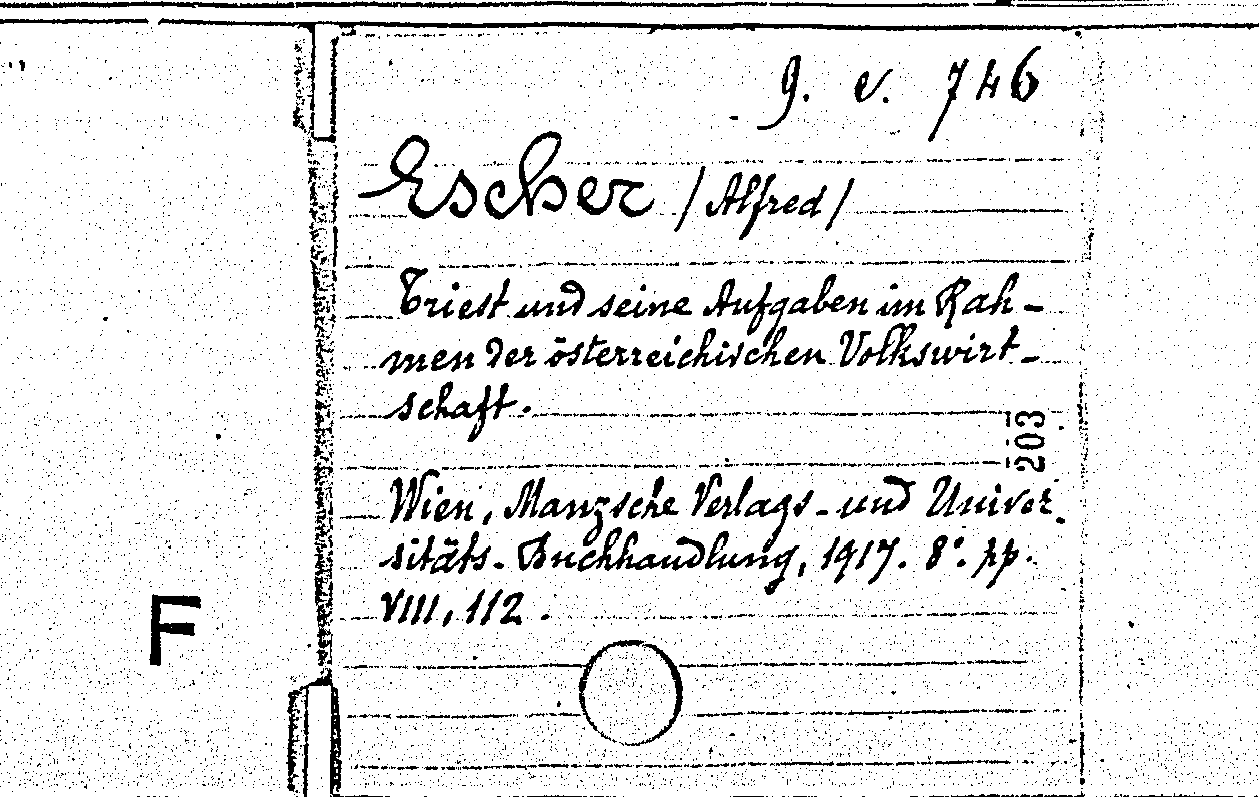 9. e. 746
Escher /Alfred/
Triest und seine Aufgaben im Rah-
men der österreichischen Volkswirt-
schaft.
203
Wien, Manzsche Verlags- und Univer-
sitäts-Buchhandlung, 1917. 8°. pp.
VIII, 112.
F